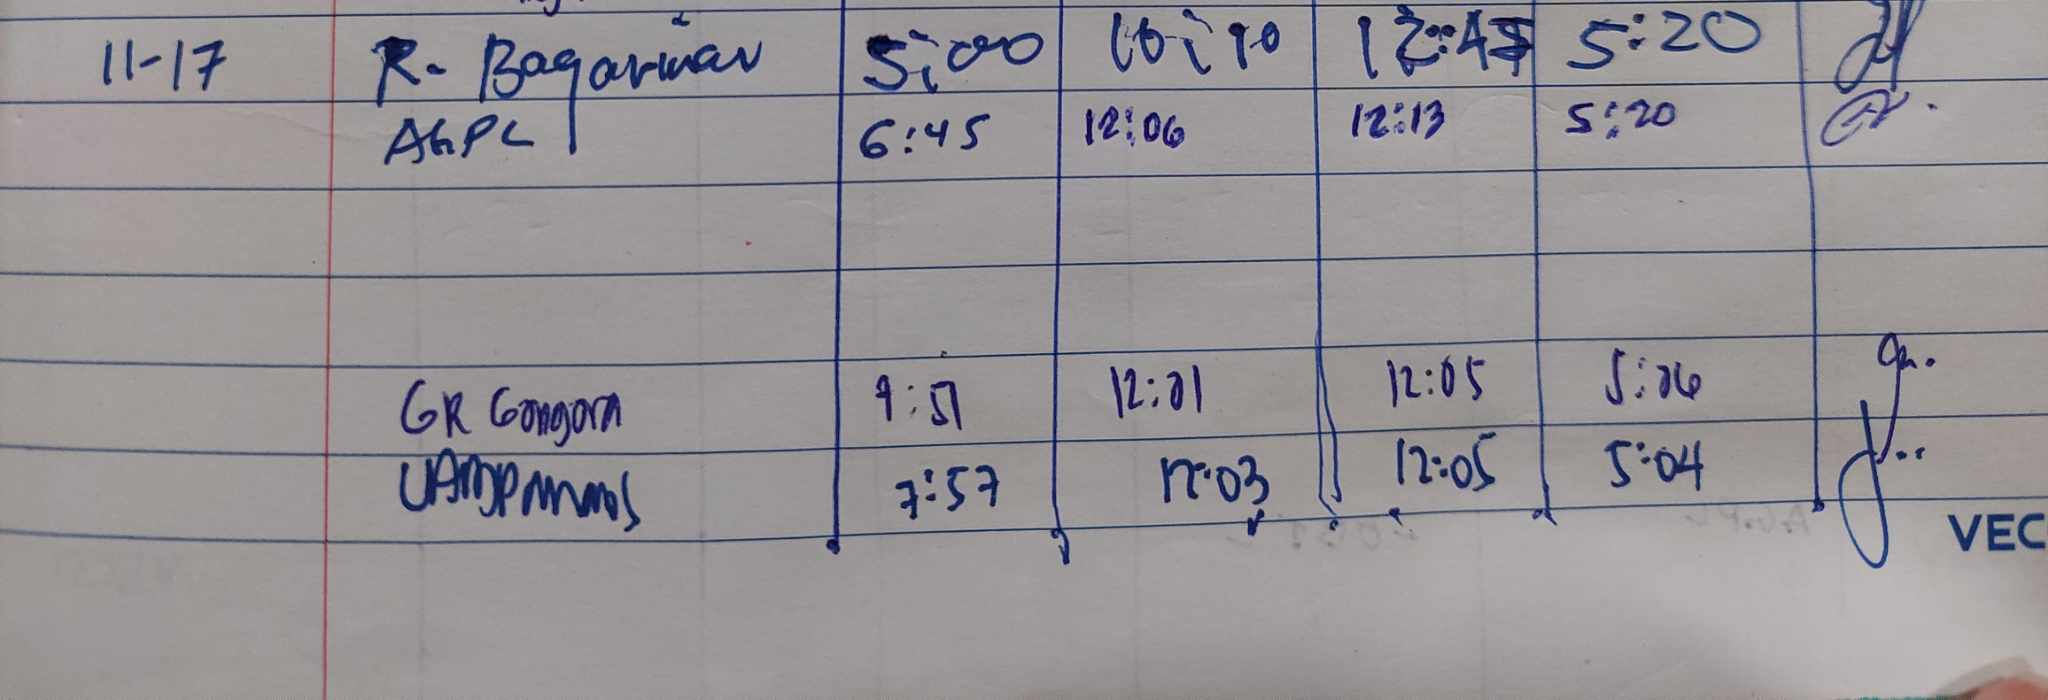 11-17 R. Bagarinao 5:00 10:10 12:45 5:20
AGPL 6:45 12:06 12:13 5:20
GR Gongora 9:51 12:01 12:05 5:06
7:57 12:03 12:05 5:04
VEC